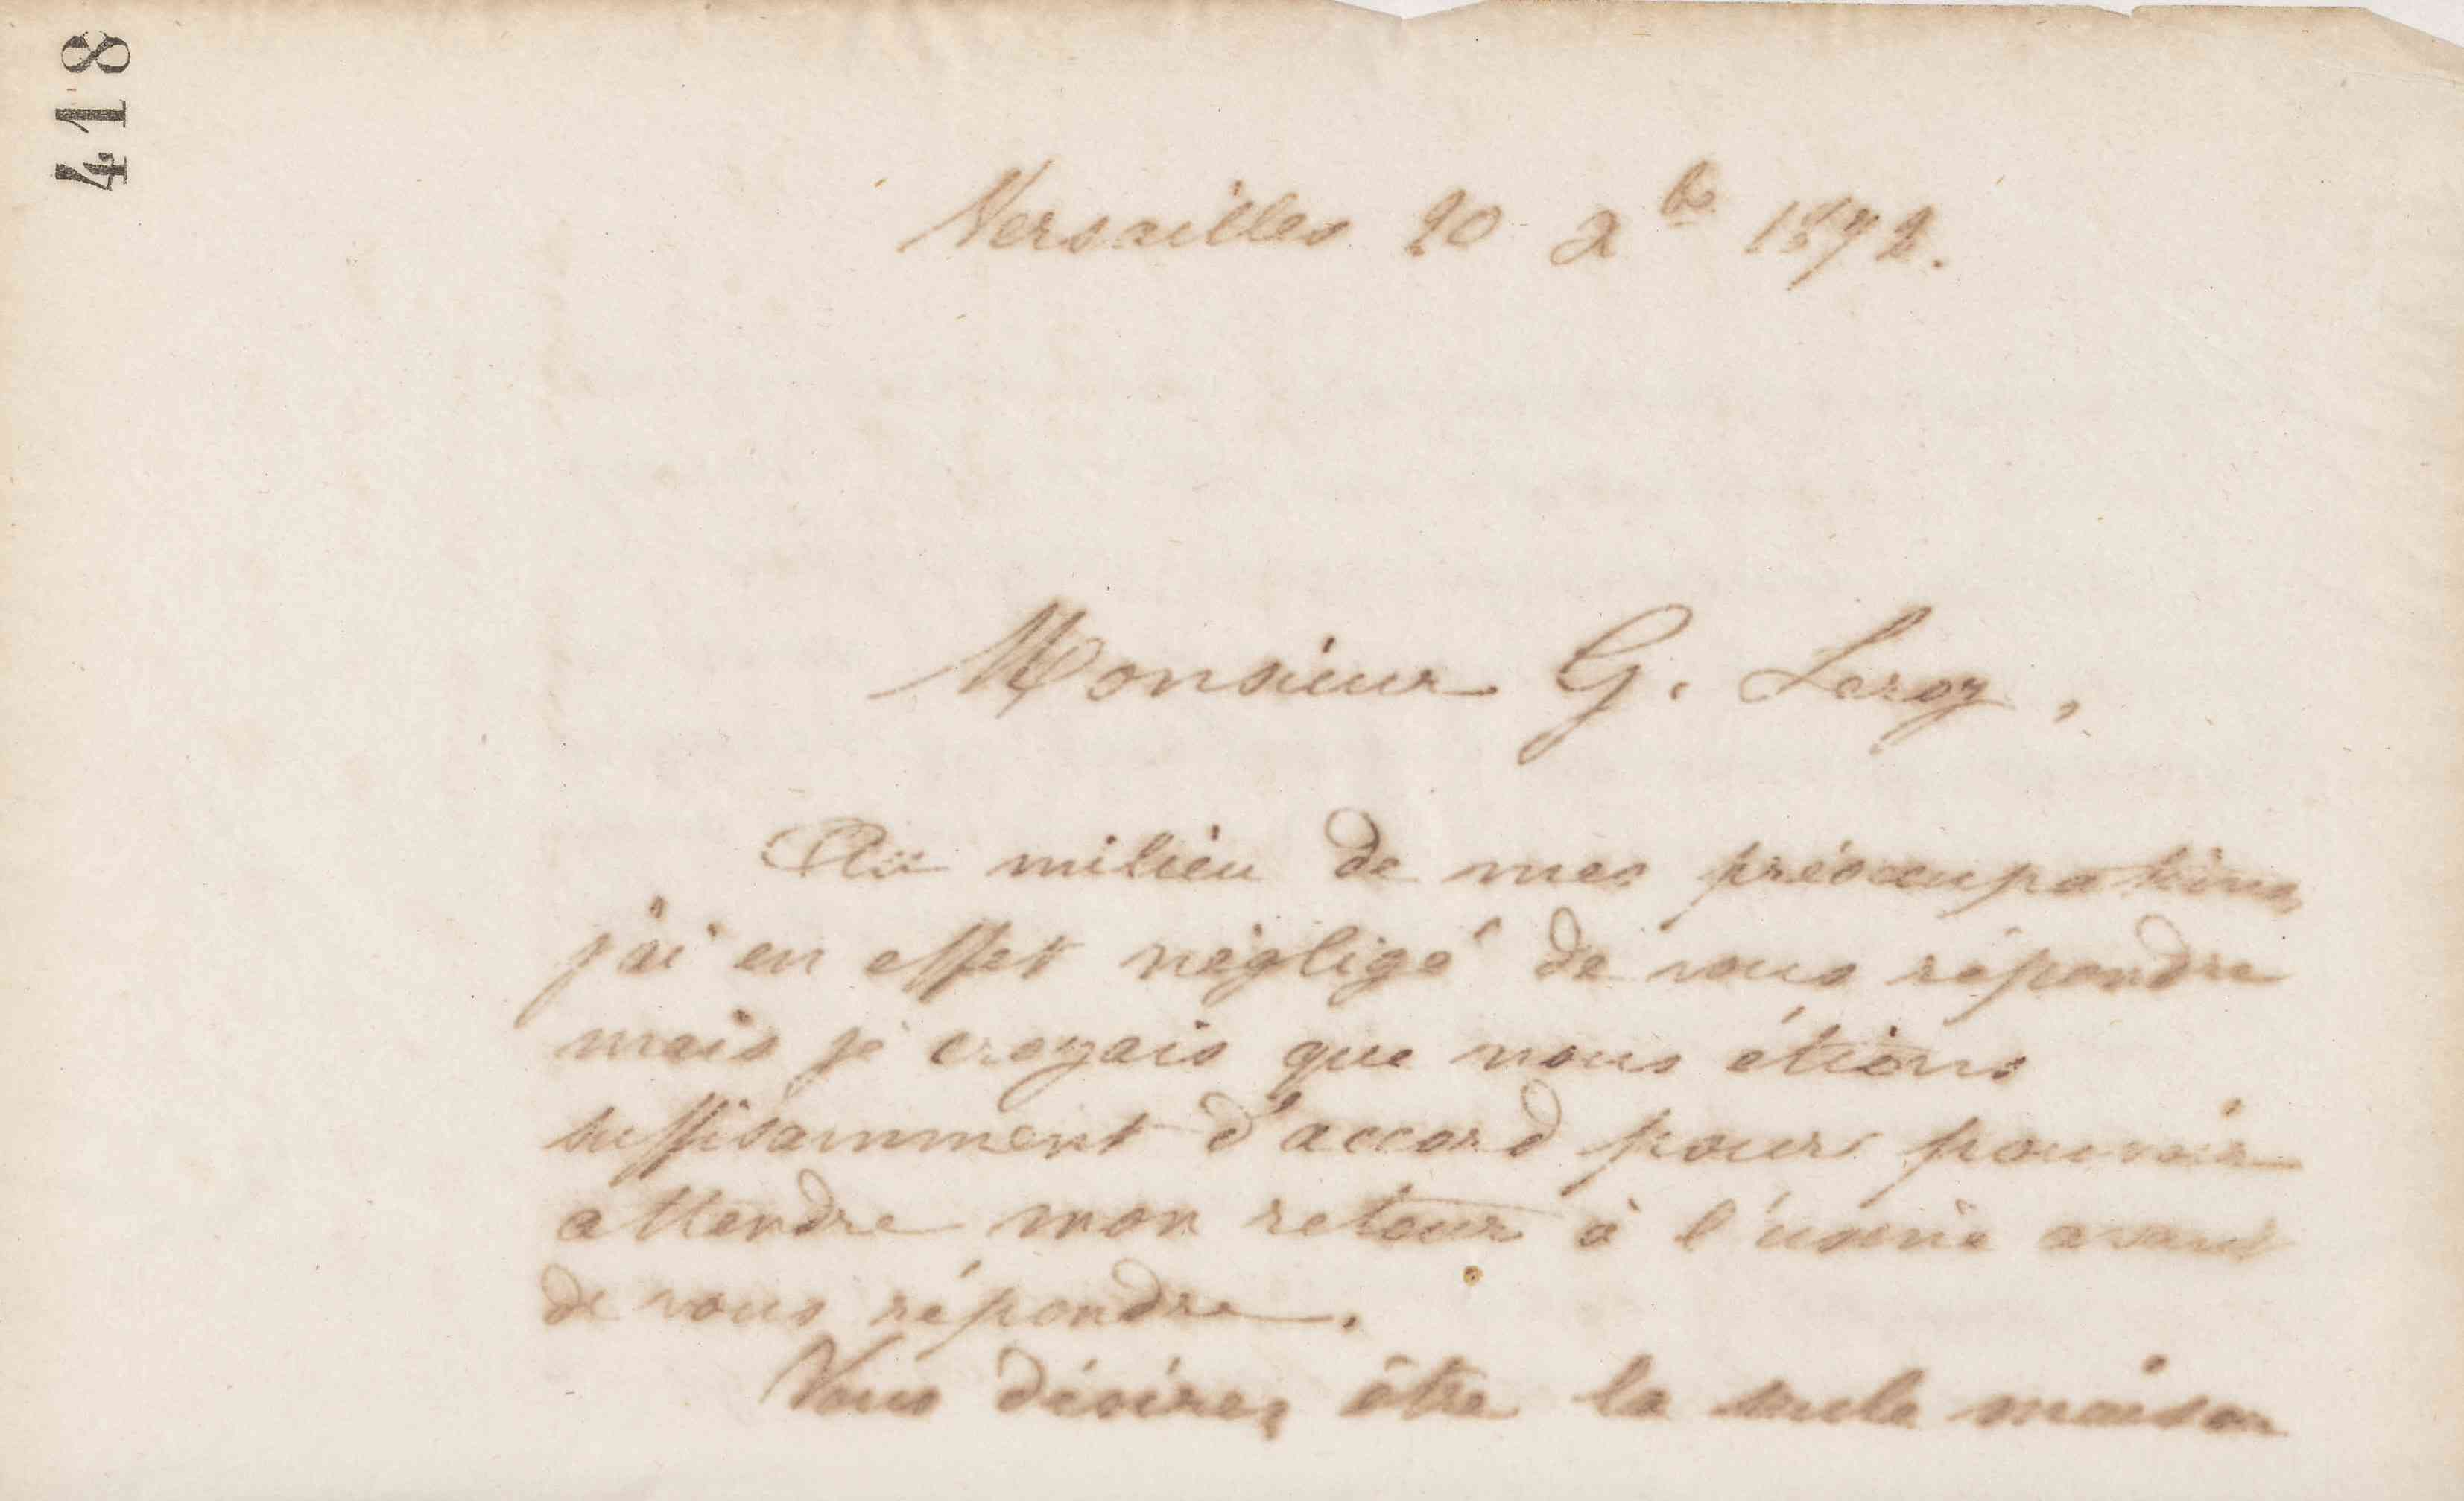 418
Versailles 20 Xbre 1872.
Monsieur G. Leroy,
Au milieu de mes préoccupations
j'ai en effet négligé de vous répondre
mais je croyais que nous étions
suffisamment d'accord pour pouvoir
attendre mon retour à l'usine avant
de vous répondre.
Vous désirez être la seule maison